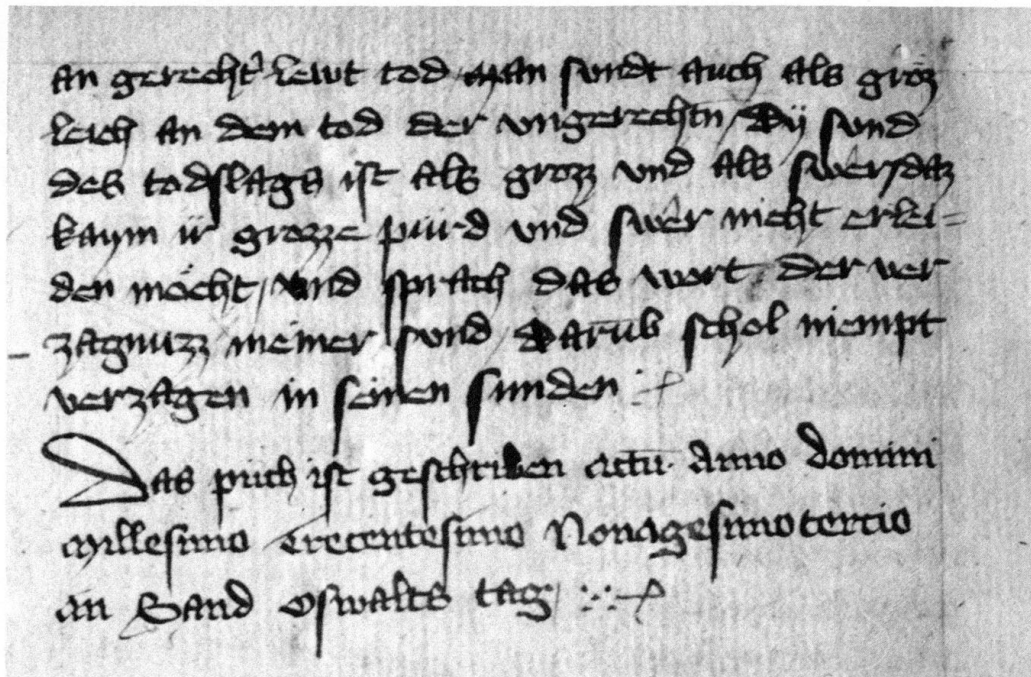 an gerecht' lewt tod man sundt auch als gröz
leich an dem tod der vngerechtn / Dy sund
des todslags ist als grozz vnd als swer / daz
kaym ir grozze pürd vnd swer nicht erlei=
den möcht / vnd sprach das wort der ver
zagnuzz meiner sund / Darūb schol niempt
verzagen in seinen sunden
Das püch ist geschriben actū Anno domini
Millesimo Trecentesimo Nonagesimotercio
an Sand Oswalts tag